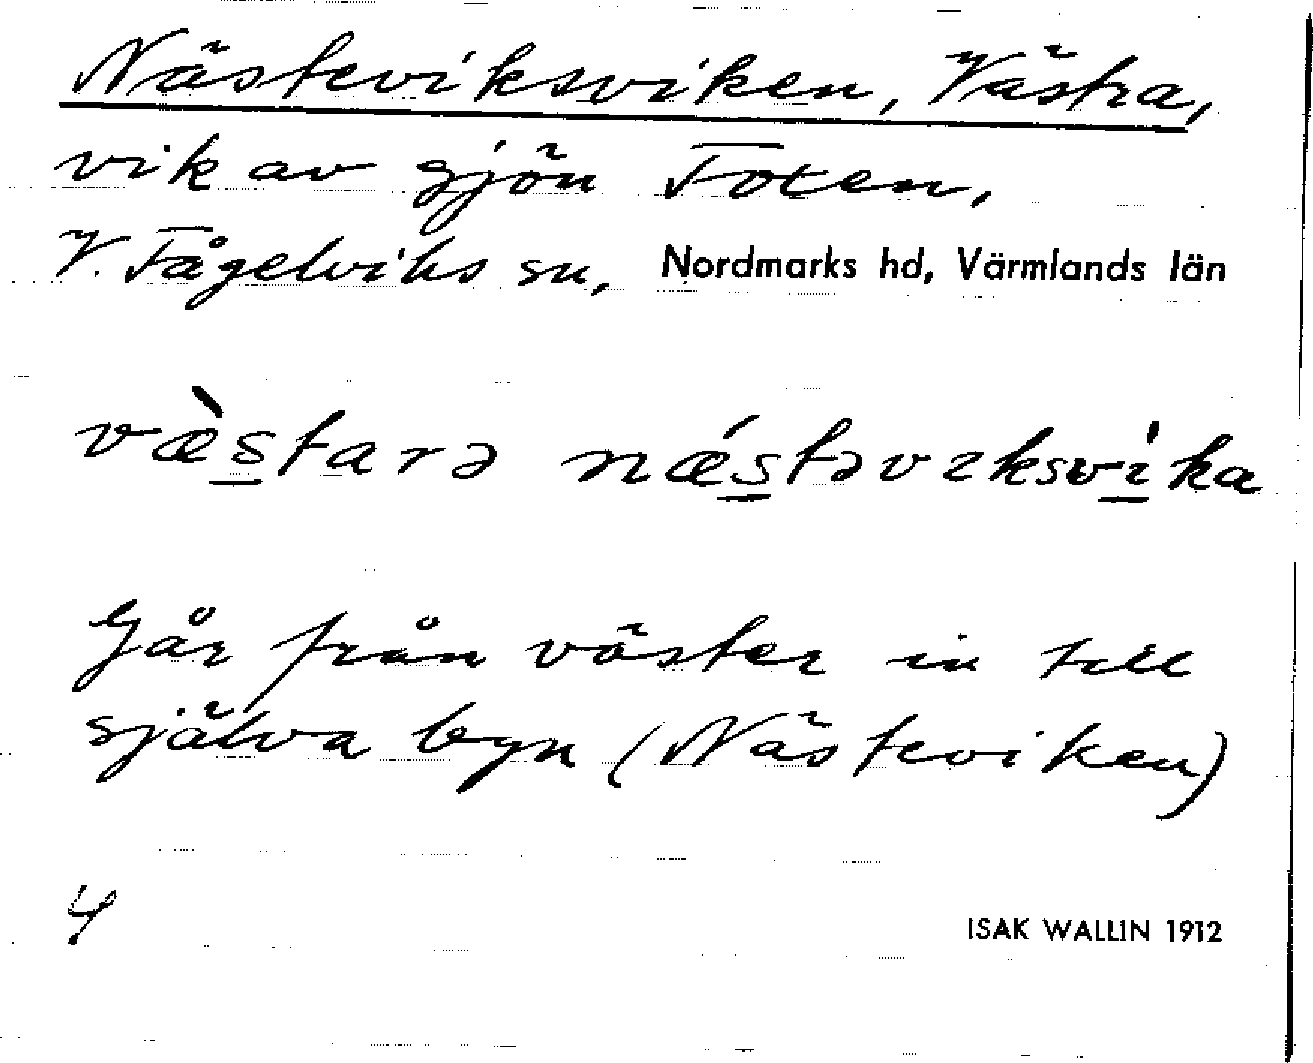 Nästeviksviken, Västra,
vik av sjön Foxen,
V. Fågelviks sn, Nordmarks hd, Värmlands län
væ̀s̲tarə nǽs̲təveksvi̲̍ka
Går från väster in till
själva byn (Nästeviken)
4
ISAK WALLIN 1912